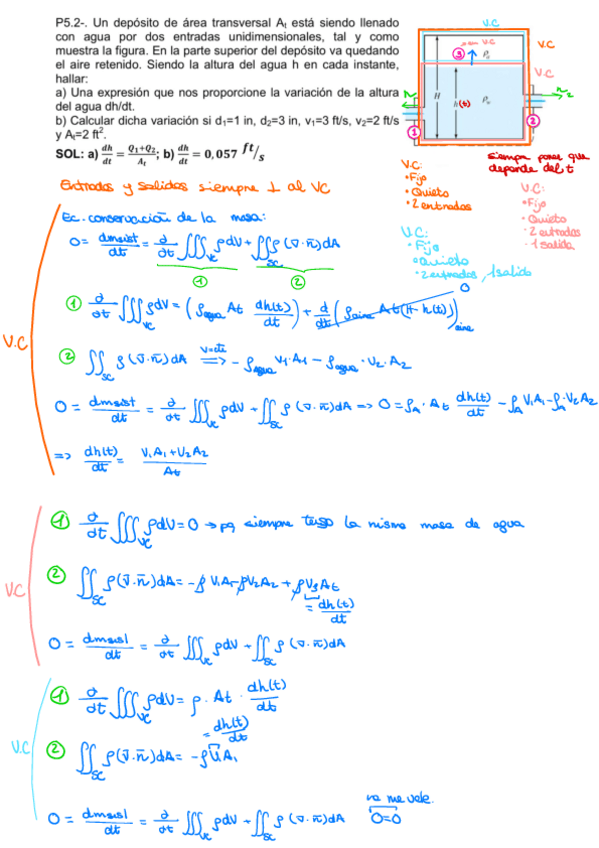 P5.2-. Un depósito de área transversal At está siendo llenado
con agua por dos entradas unidimensionales, tal y como
muestra la figura. En la parte superior del depósito va quedando
el aire retenido. Siendo la altura del agua h en cada instante,
hallar:
a) Una expresión que nos proporcione la variación de la altura
del agua dh/dt.
b) Calcular dicha variación si d₁=1 in, d₂=3 in, v₁=3 ft/s, v₂=2 ft/s
y At=2 ft².
SOL: a) dh/dt = (Q₁+Q₂)/At; b) dh/dt = 0,057 ft/s
V.C
V.C
V.C
3
H
h(t)
ρa
ρw
1
2
siempre poner que
depende del t
V.C:
•Fijo
•Quieto
•2 entradas
V.C:
•Fijo
•Quieto
·2 entradas
·1 salida
V.C:
•Fijo
•Quieto
•2 entradas, 1 salida
Entradas y salidas siempre ⊥ al VC
Ec. conservación de la masa:
0 = dmsist/dt = ∂/∂t ∭vc ρdV + ∬sc ρ(v̄·n̄)dA
1 2
V.C
1 ∂/∂t ∭vc ρdV = (ρagua At dh(t)/dt) + d/dt (ρaire At(H-h(t)))aire 0
2 ∬sc ρ(v̄·n̄)dA v=cte ⟹ -ρagua V₁·A₁ - ρagua·V₂·A₂
0 = dmsist/dt = ∂/∂t ∭vc ρdV + ∬sc ρ(v̄·n̄)dA => 0 = ρA·At dh(t)/dt - ρA V₁A₁ - ρA·V₂A₂
=> dh(t)/dt = (V₁A₁+V₂A₂)/At
V.C
1 ∂/∂t ∭vc ρdV = 0 → pq siempre tengo la misma masa de agua
2 ∬sc ρ(v̄·n̄)dA = -ρV₁A₁ - ρV₂A₂ + ρV₃At
= dh(t)/dt
0 = dmsist/dt = ∂/∂t ∭vc ρdV + ∬sc ρ(v̄·n̄)dA
V.C
1 ∂/∂t ∭vc ρdV = ρ·At·dh(t)/dt
= dh(t)/dt
2 ∬sc ρ(v̄·n̄)dA = -ρUA₁
0 = dmsist/dt = ∂/∂t ∭vc ρdV + ∬sc ρ(v̄·n̄)dA
no me vale.
0=0